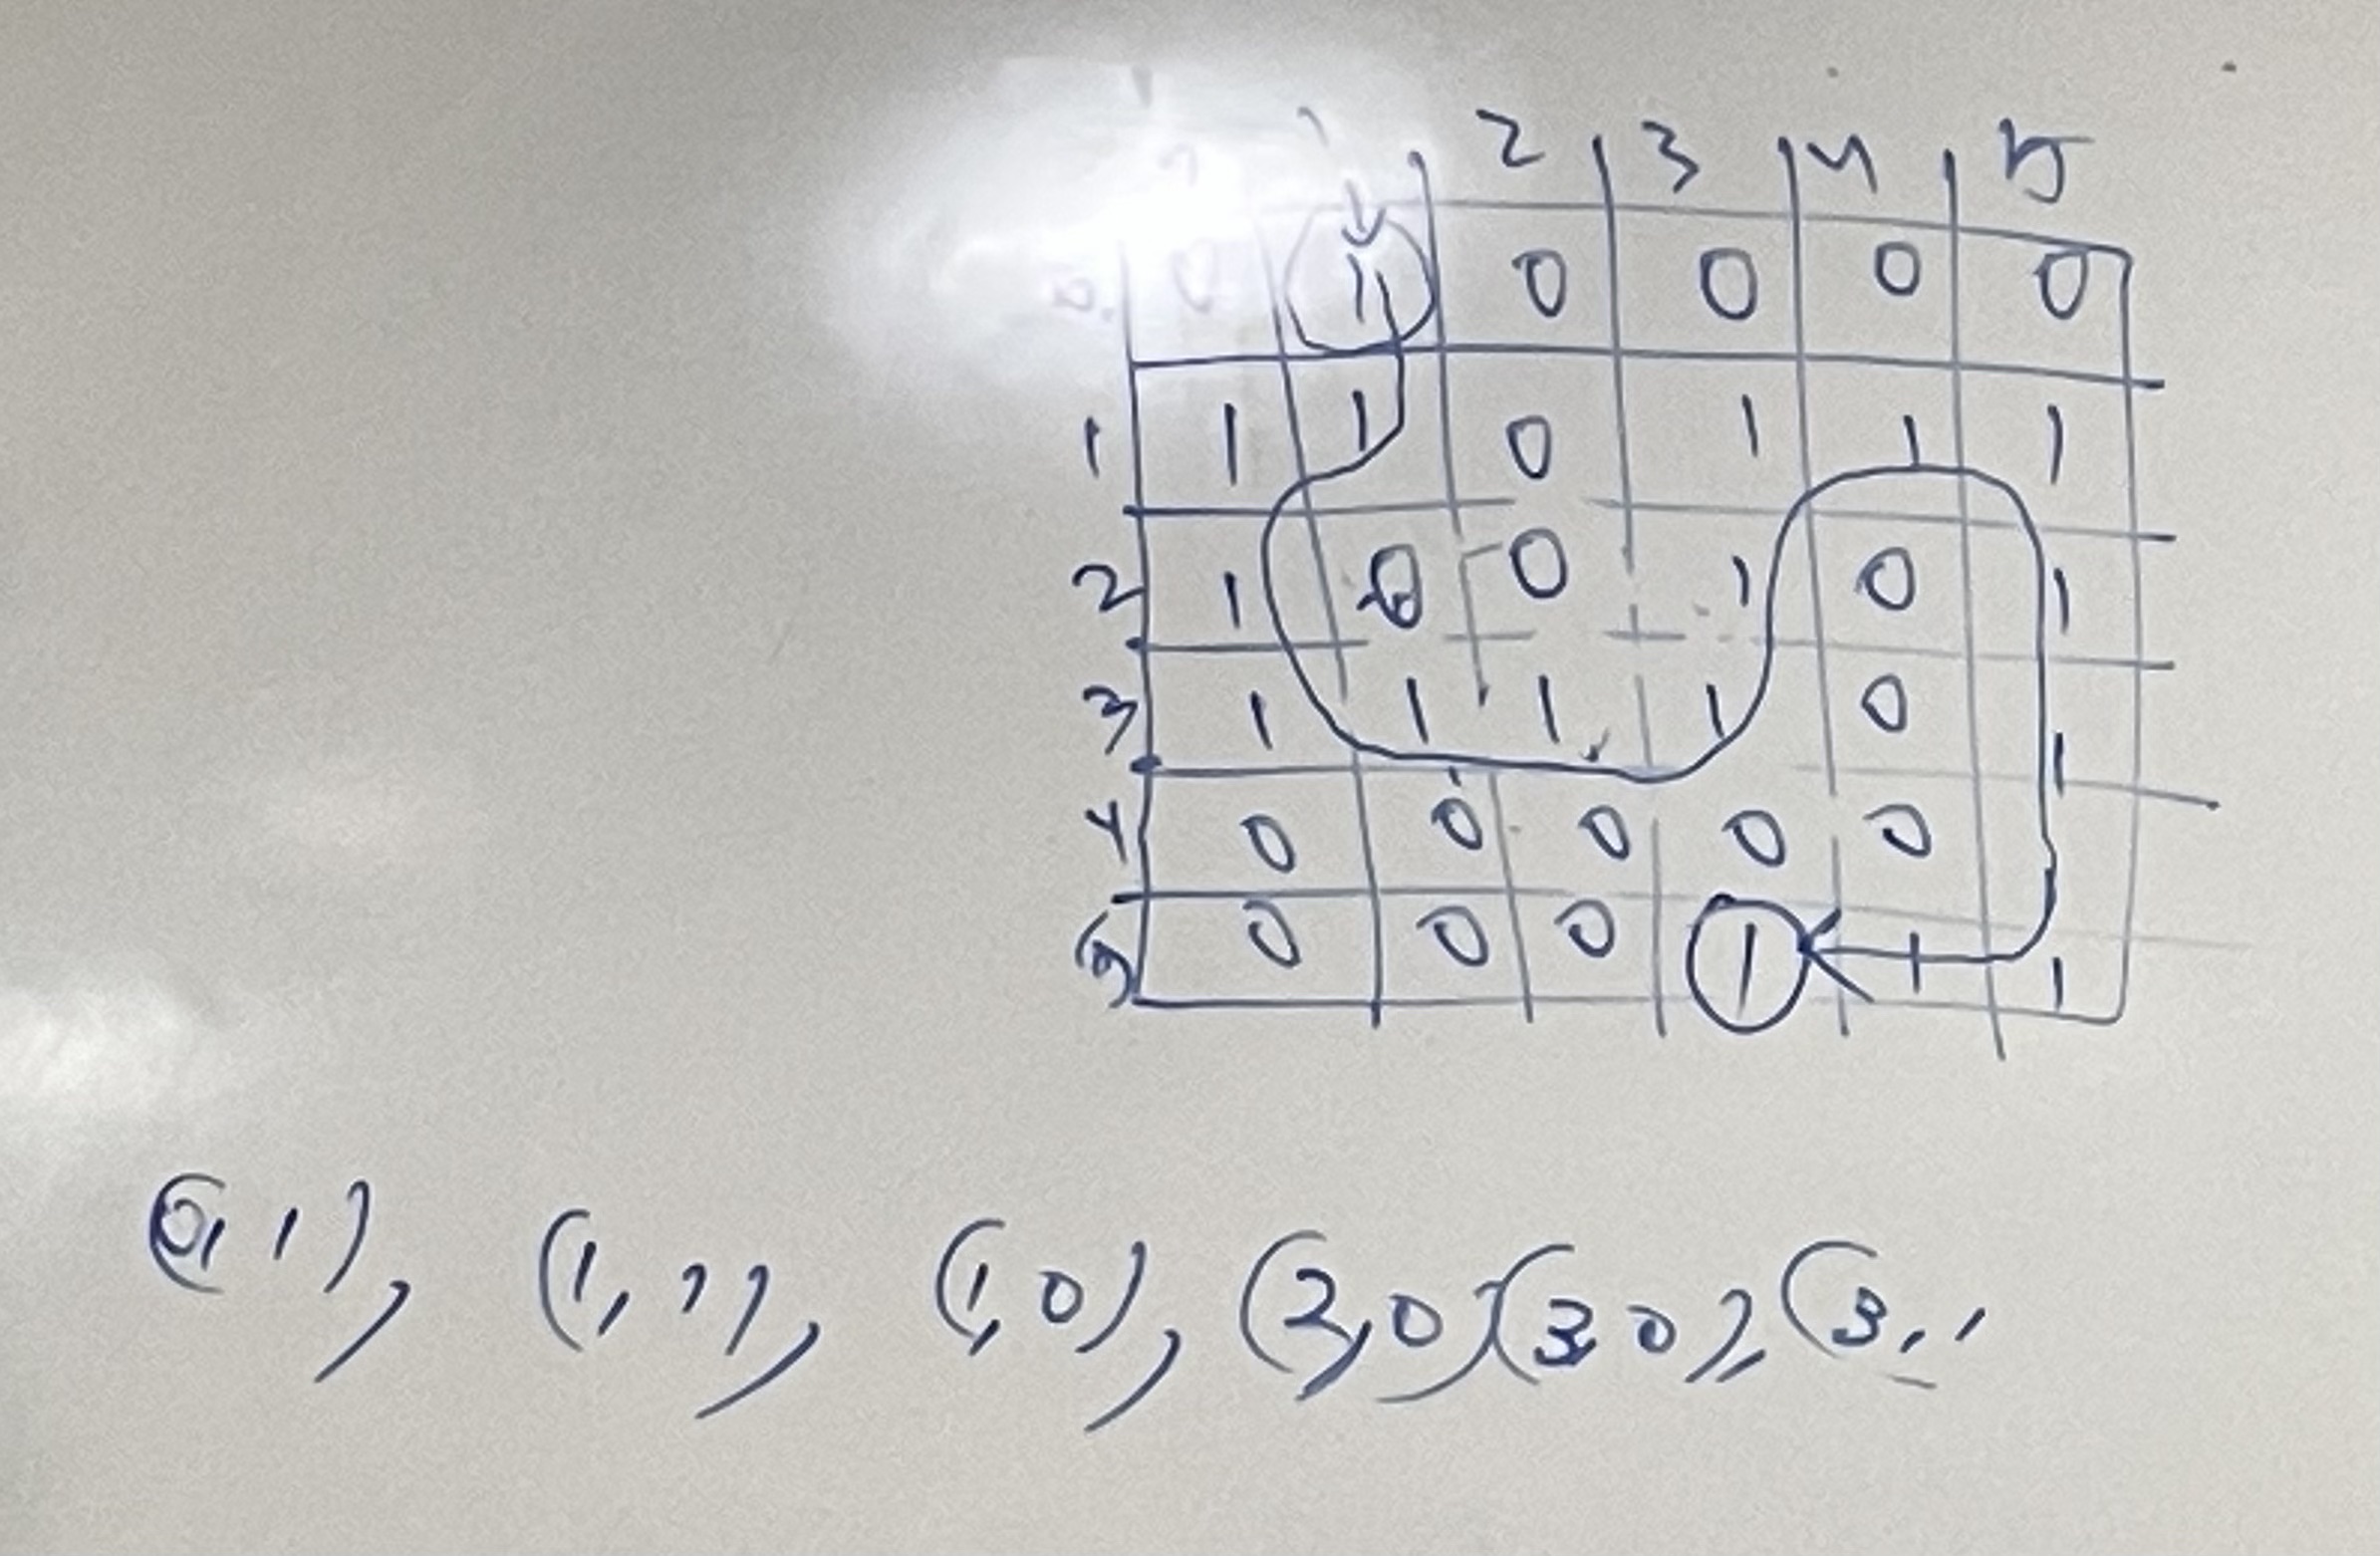 2 3 4 5
0 0 1 0 0 0 0
1 1 1 0 1 1 1
2 1 0 0 1 0 1
3 1 1 1 1 0 1
4 0 0 0 0 0
5 0 0 0 1 1 1
(0,1), (1,1), (1,0), (2,0)(3,0), (3,1